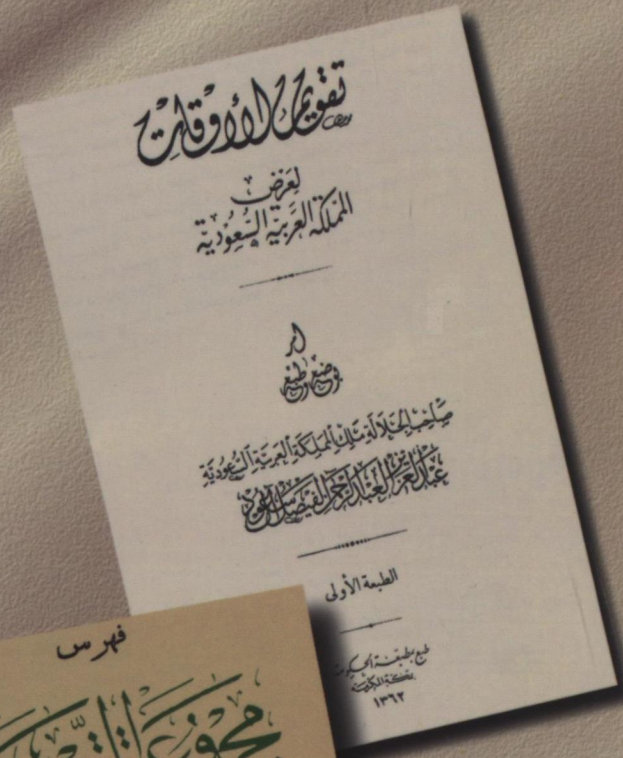 تقويم الأوقات
لعرض
المملكة العربية السعودية
أمر
بوضع وطبعه
صاحب الجلالة ملك المملكة العربية السعودية
عبد العزيز العبد الرحمن الفيصل آل سعود
الطبعة الأولى
طبع بمطبعة الحكومة
بمكة المكرمة
١٣٦٢
فهرس